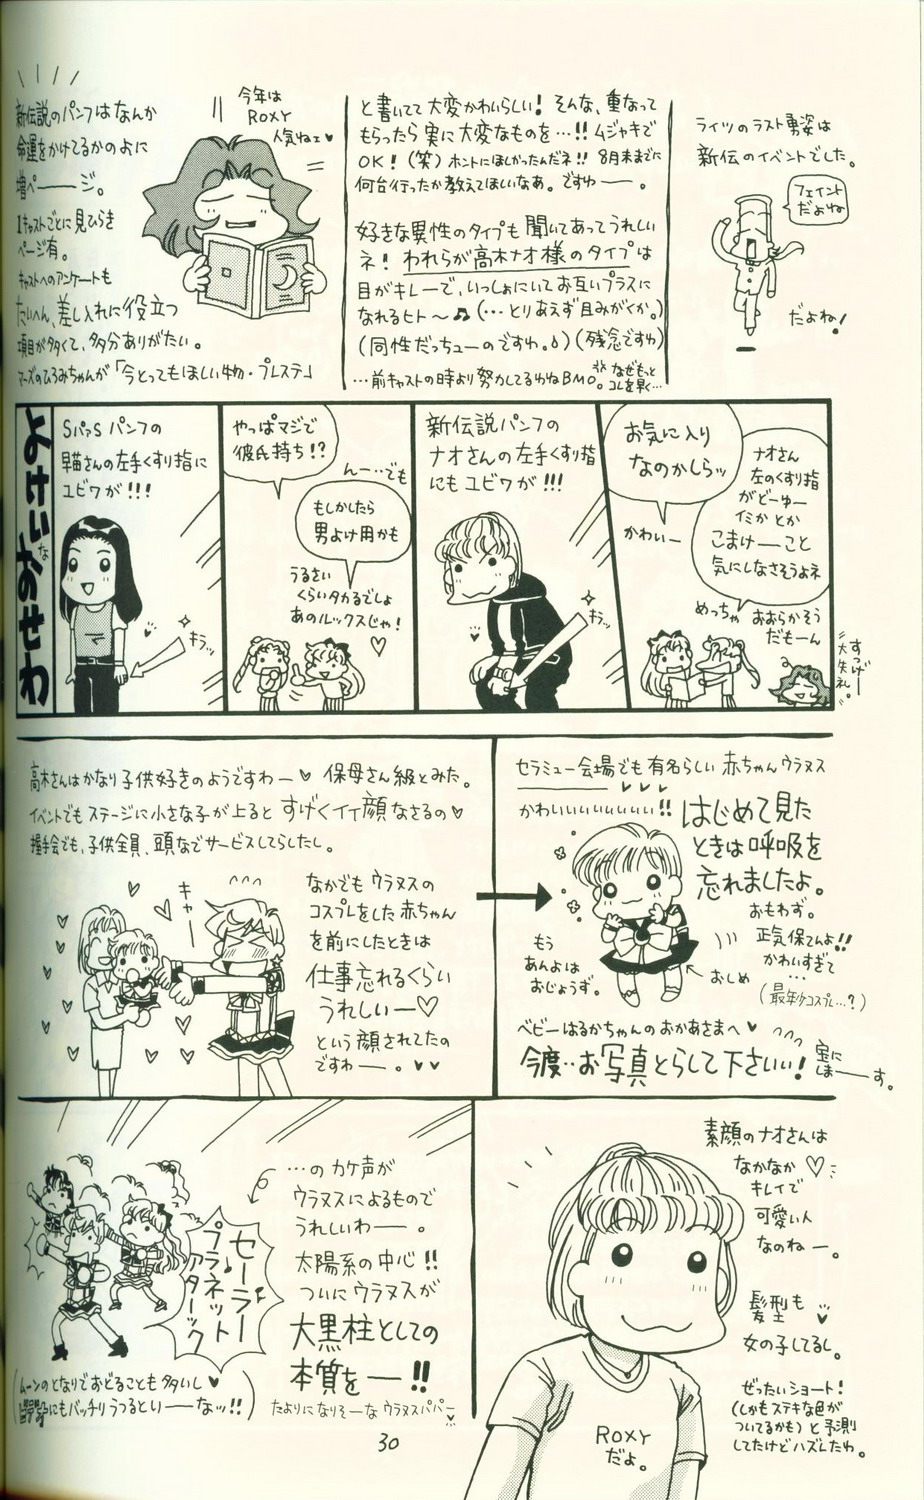 新伝説のパンフはなんか
命運をかけてるかのよに
増ペ──ジ。
1キャストごとに見ひらき
ページ有。
キャストへのアンケートも
たいへん、差し入れに役立つ
項目が多くて、多分ありがたい。
マーズのひろみちゃんが「今とってもほしい物・プレステ」
今年は
ROXY
人気ねェ♥
と書いてて大変かわいらしい!そんな、重なって
もらったら実に大変なものを…!!ムジャキで
OK!(笑)ホントにほしかったんだネ!!8月末までに
何台行ったか教えてほしいなあ。ですわ──。
好きな異性のタイプも聞いてあってうれしい
ネ!われらが高木ナオ様のタイプは
目がキレーで、いっしょにいてお互いプラスに
なれるヒト〜♫(…とりあえず目みがくか。)
(同性だっちューのですわ。)(残念ですわ)
…前キャストの時より努力してるわねBMO。
なぜもっと
コレを早く…
ライツのラスト勇姿は
新伝のイベントでした。
フェイント
だよね
だよね!
よけいなおせわ
SパァSパンフの
早苗さんの左手くすり指に
ユビワが!!!
キラッ
やっぱマジで
彼氏持ち!?
んー…でも
もしかしたら
男よけ用かも
うるさい
くらいタカるでしょ
あのルックスじゃ!
♡
新伝説パンフの
ナオさんの左手くすり指
にもユビワが!!!
キラッ
お気に入り
なのかしらッ
かわいー
ナオさん
左のくすり指
がどーゆー
イミかとか
こまけ──こと
気にしなさそうよネ
めっちゃ
おおらかそう
だもーん
すっげー
大失礼。
高木さんはかなり子供好きのようですわー♥ 保母さん級とみた。
イベントでもステージに小さな子が上るとすげくイイ顔なさるの♥
握手会でも、子供全員、頭なでサービスしてらしたし。
キャー
なかでもウラヌスの
コスプレをした赤ちゃん
を前にしたときは
仕事忘れるくらい
うれしいー♡
という顔されてたの
ですわ──。♥♥
セラミュー会場でも有名らしい赤ちゃんウラヌス
かわいいいいいいいい!!
はじめて見た
ときは呼吸を
忘れましたよ。
おもわず。
もう
あんよは
おじょうず。
おしめ
正気保てんよ!!
かわいすぎて
…
(最年少コスプレ…?)
ベビーはるかちゃんのおかあさまへ♥
今度…お写真とらして下さいい!
室に
しま──す。
セーラー
プラネット
アタック
…のカケ声が
ウラヌスによるもので
うれしいわ──。
太陽系の中心!!
ついにウラヌスが
大黒柱としての
本質を──!!
たよりになりそーなウラヌスパパー
(ムーンのとなりでおどることも多いし♥
にもバッチリうつるとい──なッ!!)
素顔のナオさんは
なかなか♡
キレイで
可愛い人
なのねー。
髪型も
女の子してるし。
ぜったいショート!
(しかもステキな色が
ついてるかも)と予測
してたけどハズレたわ。
ROXY
だよ。
30